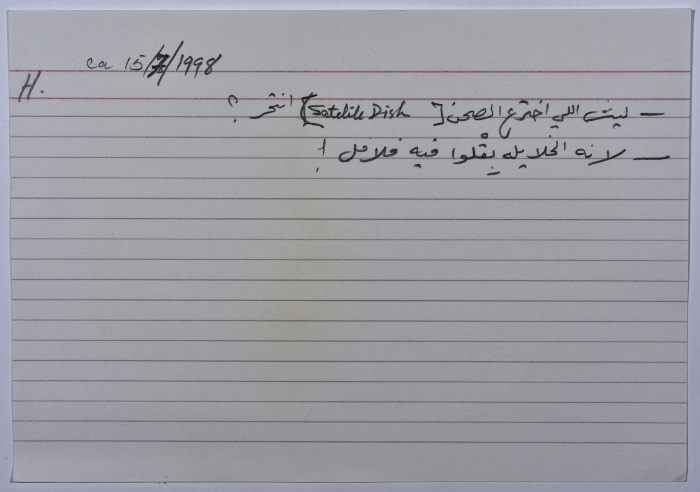 ca 15/7/1998
H.
— ليش اللي اخترع الصحن [Satelite Dish] انتحر ؟
— لانه الخلايله بِقْلوا فيه فلافل !